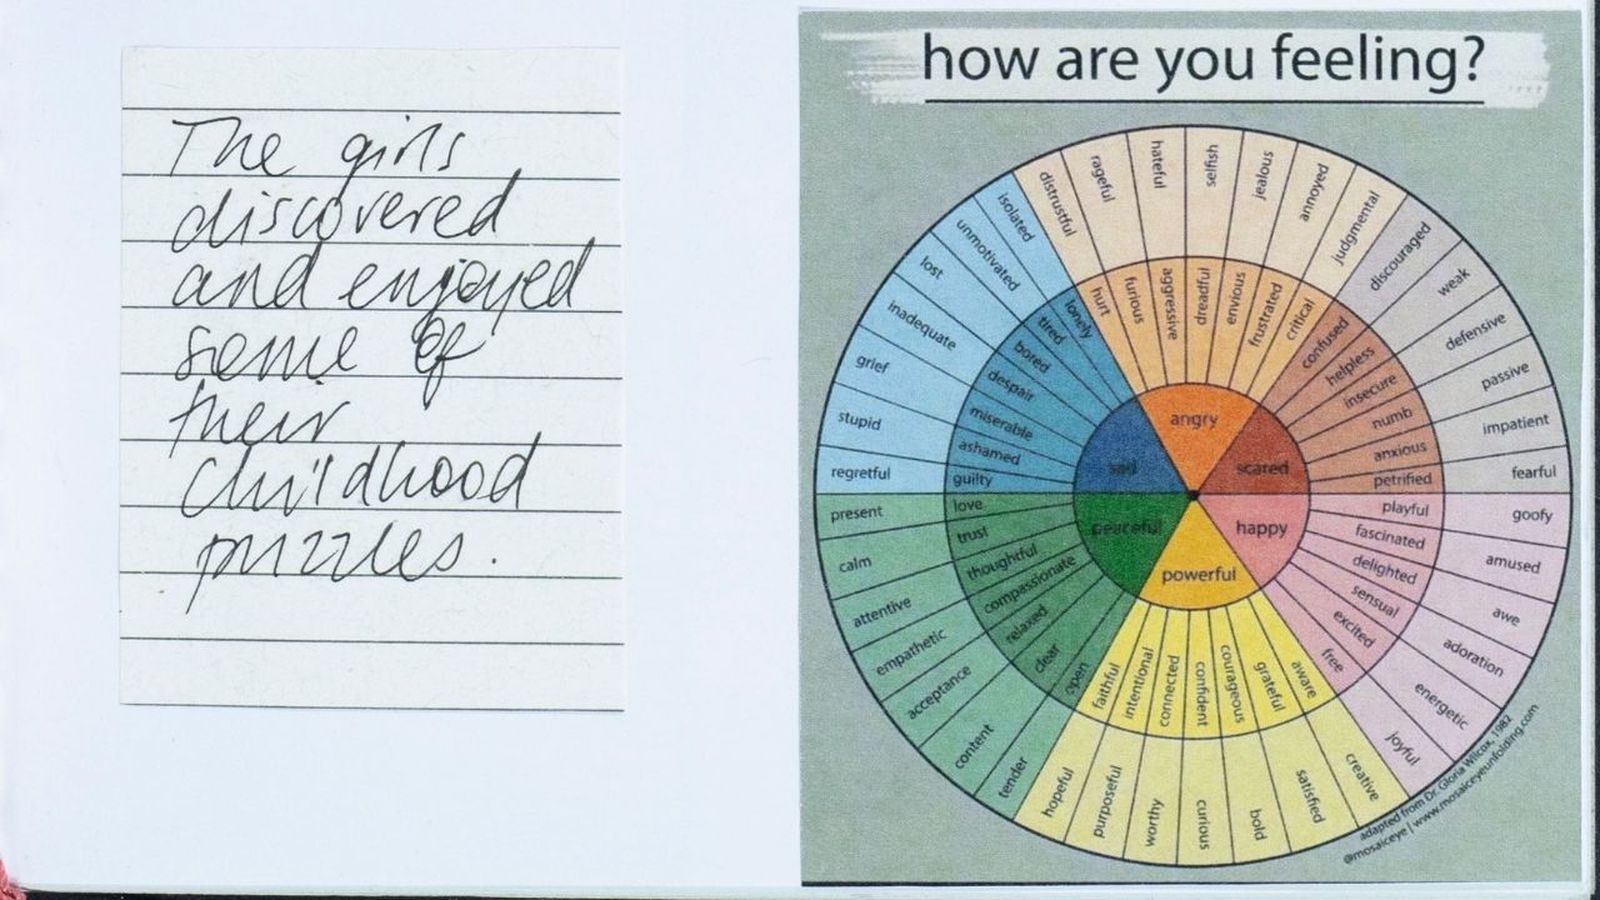 The girls
discovered
and enjoyed
some of
their
childhood
puzzles.
how are you feeling?
distrustful
rageful
hateful
selfish
jealous
annoyed
judgmental
discouraged
weak
defensive
passive
impatient
fearful
goofy
amused
awe
adoration
energetic
joyful
creative
satisfied
bold
curious
worthy
purposeful
hopeful
tender
content
acceptance
empathetic
attentive
calm
present
regretful
stupid
grief
inadequate
lost
unmotivated
isolated
hurt
furious
aggressive
dreadful
envious
frustrated
critical
confused
helpless
insecure
numb
anxious
petrified
playful
fascinated
delighted
sensual
excited
free
aware
grateful
courageous
confident
connected
intentional
faithful
open
clear
relaxed
compassionate
thoughtful
trust
love
guilty
ashamed
miserable
despair
bored
tired
lonely
angry
scared
happy
powerful
peaceful
sad
adapted from Dr. Gloria Wilcox, 1982
@mosaiceye | www.mosaiceyeunfolding.com